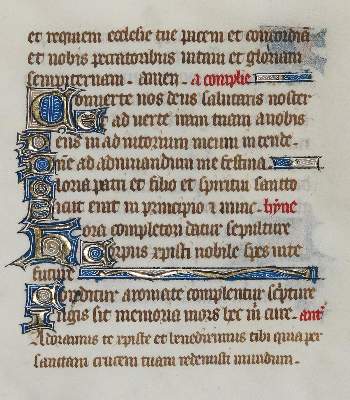 et requiem ecclesie tue pacem et concordiam
et nobis peccatoribus uitam et gloriam
sempiternam. amen. a complie
Conuerte nos deus salutaris noster
et auerte iram tuam a nobis
Deus in adiutorium meum intende.
Domine ad adiuuandum me festina.
Gloria patri et filio et spiritui sancto
Sicut erat in principio et nunc. hyne
Hora completori datur sepulture
Corpus xpisti nobile spes uite
future
Conditur aromate complentur scripture
Iugis sit memoria mors hec in cure. ant
Adoramus te xpiste et benedicimus tibi quia per
sanctam crucem tuam redemisti mundum.